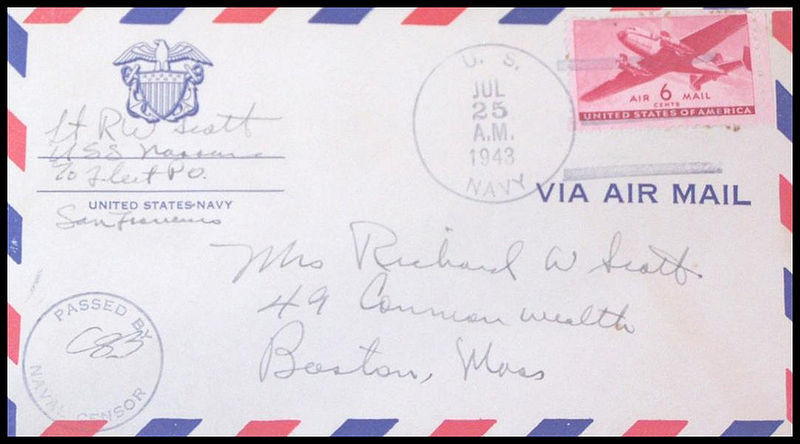 Lt RW Scott
USS Nassau
c/o Fleet P.O.
UNITED STATES NAVY
San Francisco
U. S.
JUL
25
A.M.
1943
NAVY
AIR 6 MAIL
CENTS
UNITED STATES OF AMERICA
VIA AIR MAIL
Mrs Richard W Scott
49 Commonwealth
Boston, Mass
PASSED BY
NAVAL CENSOR